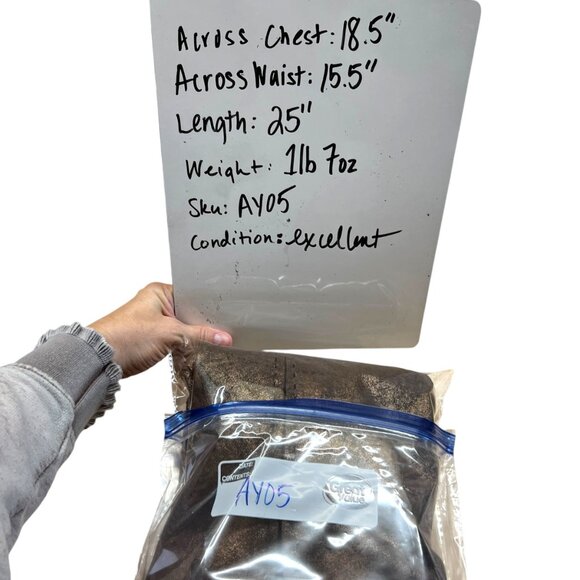 Across Chest: 18.5"
Across Waist: 15.5"
Length: 25"
Weight: 1lb 7oz
Sku: AY05
Condition: excellent
DATE:
CONTENTS:
AY05
Great
Value